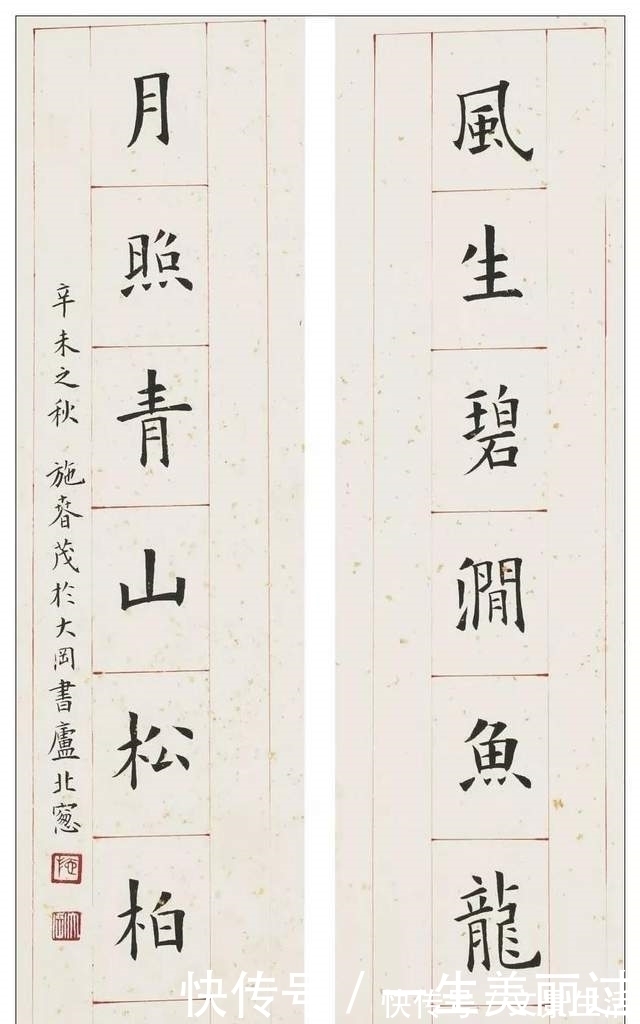 風生碧澗魚龍
月照青山松柏
辛未之秋 施春茂於大岡書廬北窻
快传号 / 一生美丽过
快传号